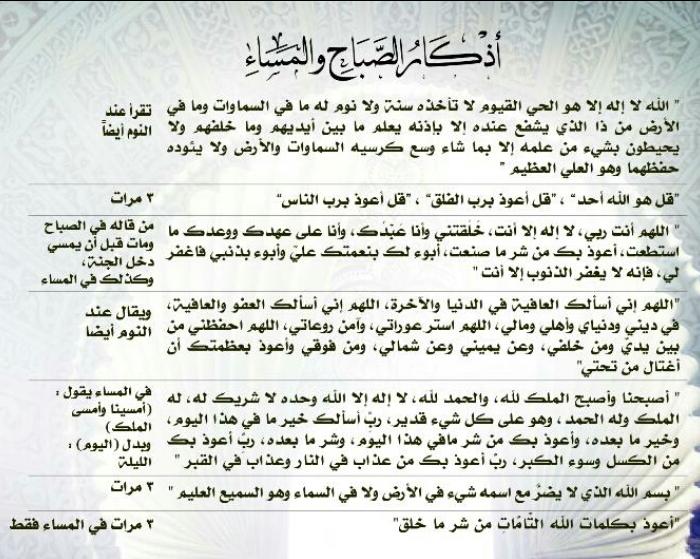 أذكار الصباح والمساء
" الله لا إله إلا هو الحي القيوم لا تأخذه سنة ولا نوم له ما في السماوات وما في
الأرض من ذا الذي يشفع عنده إلا بإذنه يعلم ما بين أيديهم وما خلفهم ولا
يحيطون بشيء من علمه إلا بما شاء وسع كرسيه السماوات والأرض ولا يئوده
حفظهما وهو العلي العظيم "
تقرأ عند
النوم أيضاً
"قل هو الله أحد" ، "قل أعوذ برب الفلق" ، "قل أعوذ برب الناس"
٣ مرات
" اللهم أنت ربي، لا إله إلا أنت، خَلَقتني وأنا عَبْدُك، وأنا على عهدك ووعدك ما
استطعت، أعوذ بك من شر ما صنعت، أبوء لك بنعمتك عليّ وأبوء بذنبي فاغفر
لي، فإنه لا يغفر الذنوب إلا أنت "
من قاله في الصباح
ومات قبل أن يمسي
دخل الجنة،
وكذلك في المساء
"اللهم إني أسألك العافية في الدنيا والآخرة، اللهم إني أسألك العفو والعافية،
في ديني ودنياي وأهلي ومالي، اللهم استر عوراتي، وآمن روعاتي، اللهم احفظني من
بين يديّ ومن خلفي، وعن يميني وعن شمالي، ومن فوقي وأعوذ بعظمتك أن
أغتال من تحتي"
ويقال عند
النوم أيضا
" أصبحنا وأصبح الملك لله، والحمد لله، لا إله إلا الله وحده لا شريك له، له
الملك وله الحمد ، وهو على كل شيء قدير، ربّ أسألك خير ما في هذا اليوم،
وخير ما بعده، وأعوذ بك من شر مافي هذا اليوم، وشر ما بعده، ربِّ أعوذ بك
من الكسل وسوء الكبر، ربّ أعوذ بك من عذاب في النار وعذاب في القبر "
في المساء يقول :
(أمسينا وأمسى
الملك)
وبدل (اليوم) :
الليلة
" بسم الله الذي لا يضرُّ مع اسمه شيء في الأرض ولا في السماء وهو السميع العليم "
٣ مرات
"أعوذ بكلمات الله التَّامَّاتِ من شر ما خلق"
٣ مرات في المساء فقط